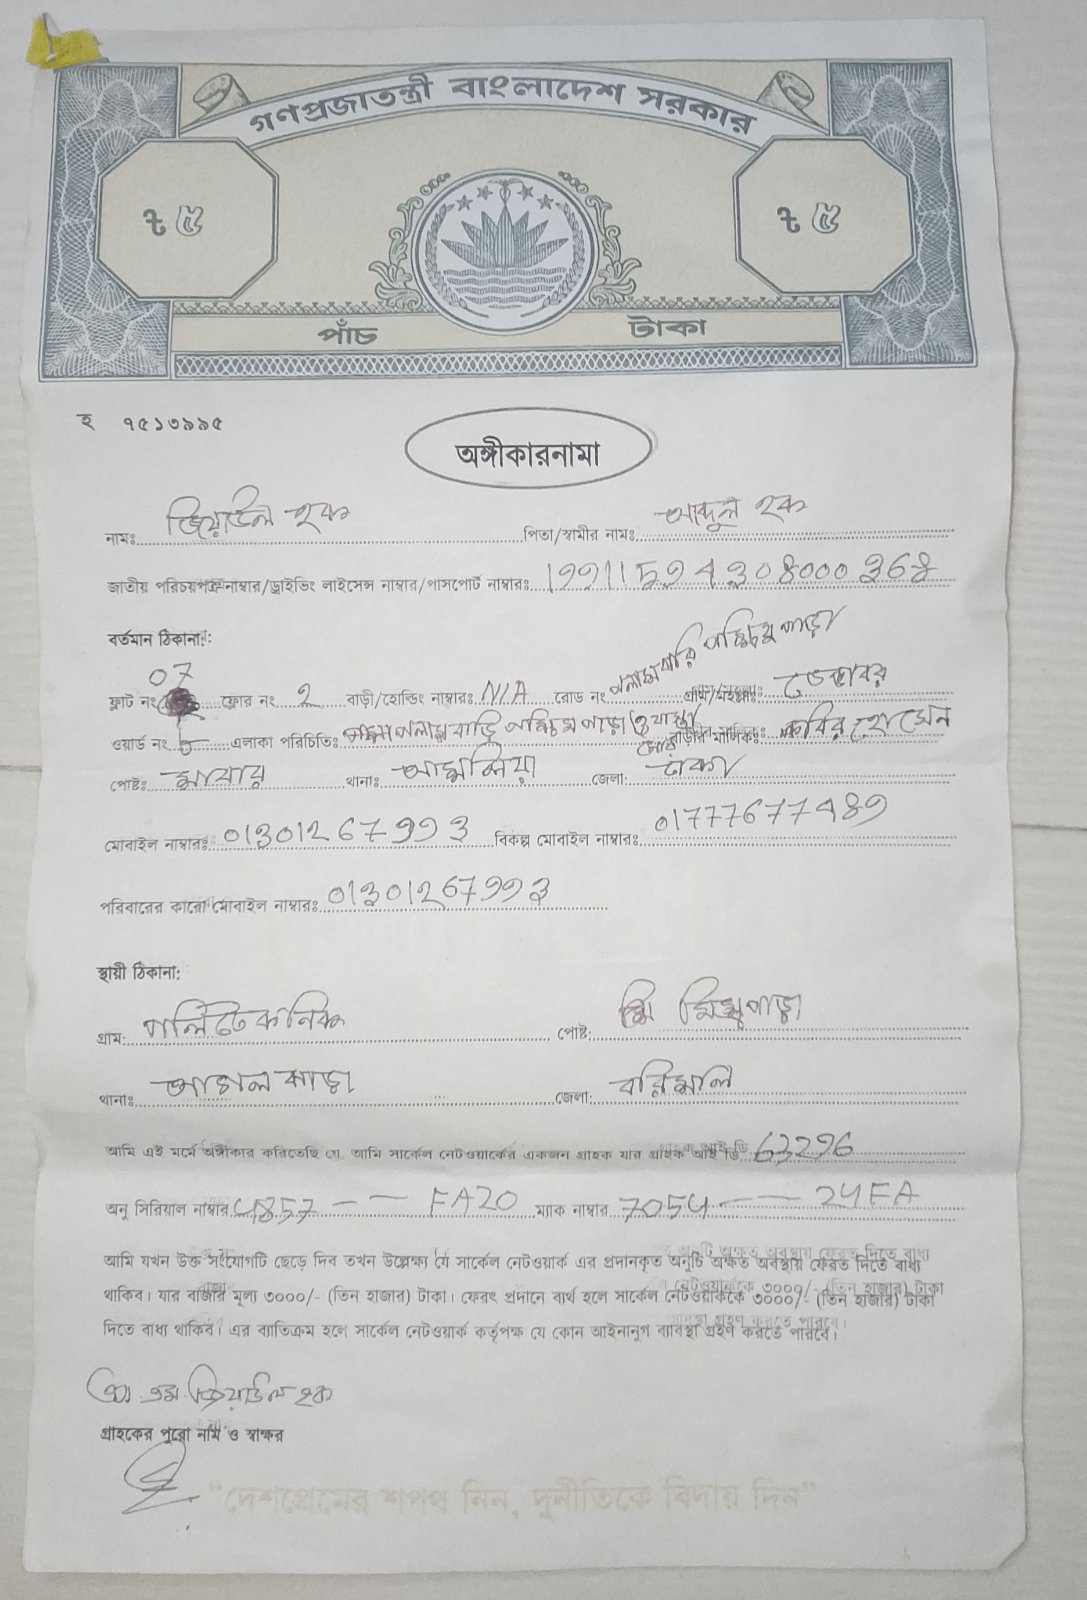 গণপ্রজাতন্ত্রী বাংলাদেশ সরকার
৳ ৫ ৳ ৫
পাঁচ টাকা
হ ৭৫১৩৯৯৫
অঙ্গীকারনামা
নামঃ জিয়াউল হক পিতা/স্বামীর নামঃ আব্দুল হক
জাতীয় পরিচয়পত্র নাম্বার/ড্রাইভিং লাইসেন্স নাম্বার/পাসপোর্ট নাম্বারঃ
বর্তমান ঠিকানা:
ফ্লাট নং 07 ফ্লোর নং 2 বাড়ী/হোল্ডিং নাম্বারঃ N/A রোড নং পলাশবাড়ি পশ্চিম পাড়া গ্রাম/মহল্লাঃ
ওয়ার্ড নং এলাকা পরিচিতিঃ পলাশ বাড়ি পশ্চিম পাড়া বাড়ীর মালিকঃ কবির হোসেন
পোষ্টঃ সাভার থানাঃ আশুলিয়া জেলা: ঢাকা
মোবাইল নাম্বারঃ বিকল্প মোবাইল নাম্বারঃ
পরিবারের কারো মোবাইল নাম্বারঃ
স্থায়ী ঠিকানা:
গ্রাম: পলিটেকনিক পোষ্ট:
থানাঃ আগৈলঝাড়া জেলা: বরিশাল
আমি এই মর্মে অঙ্গীকার করিতেছি যে, আমি সার্কেল নেটওয়ার্কের একজন গ্রাহক যার গ্রাহক আই ডি 63296
অনু সিরিয়াল নাম্বার 4857 -- FA20 ম্যাক নাম্বার 7054 -- 24FA
আমি যখন উক্ত সংযোগটি ছেড়ে দিব তখন উল্লেক্ষ্য যে সার্কেল নেটওয়ার্ক এর প্রদানকৃত অনুটি অক্ষত অবস্থায় ফেরত দিতে বাধ্য
থাকিব। যার বাজার মূল্য ৩০০০/- (তিন হাজার) টাকা। ফেরৎ প্রদানে ব্যর্থ হলে সার্কেল নেটওয়ার্ককে ৩০০০/- (তিন হাজার) টাকা
দিতে বাধ্য থাকিব। এর ব্যাতিক্রম হলে সার্কেল নেটওয়ার্ক কর্তৃপক্ষ যে কোন আইনানুগ ব্যাবস্থা গ্রহণ করতে পারবে।
এস এম জিয়াউল হক
গ্রাহকের পুরো নাম ও স্বাক্ষর
“দেশপ্রেমের শপথ নিন, দুর্নীতিকে বিদায় দিন”